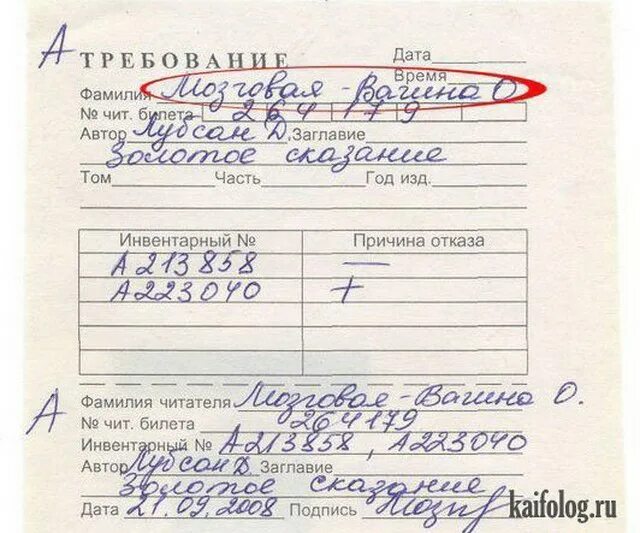 А
ТРЕБОВАНИЕ Дата
Время
Фамилия Мозговая-Вагина О
№ чит. билета 264179
Автор Лубсан Д, Заглавие
Золотое сказание
Том Часть Год изд.
Инвентарный № Причина отказа
А213858 —
А223040 +
А
Фамилия читателя Мозговая-Вагина О.
№ чит. билета 264179
Инвентарный № А213858, А223040
Автор Лубсан Д Заглавие
Золотое сказание
Дата 21.09.2008 Подпись
kaifolog.ru